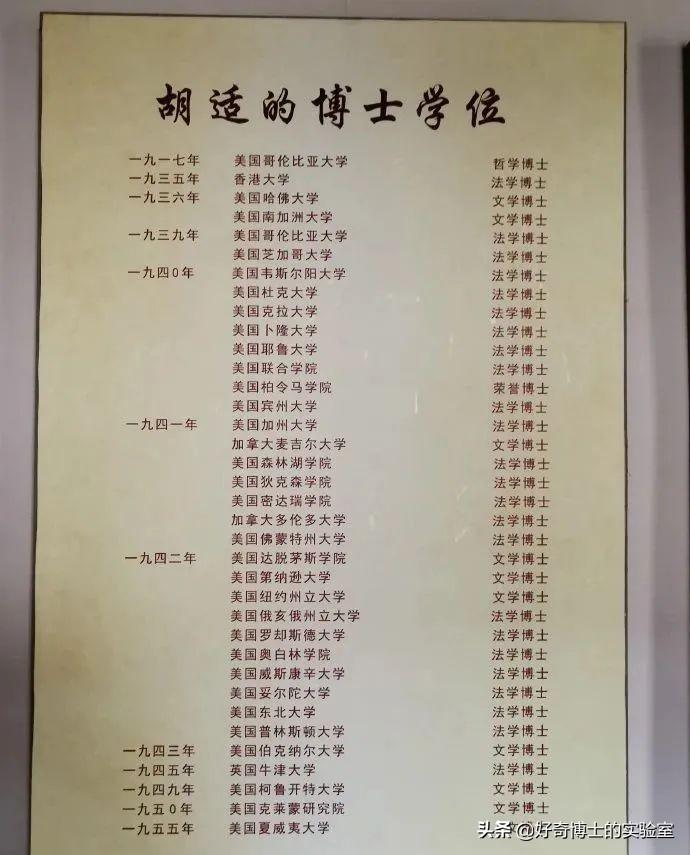 胡适的博士学位
一九一七年 美国哥伦比亚大学 哲学博士
一九三五年 香港大学 法学博士
一九三六年 美国哈佛大学 文学博士
美国南加洲大学 文学博士
一九三九年 美国哥伦比亚大学 法学博士
美国芝加哥大学 法学博士
一九四0年 美国韦斯尔阳大学 法学博士
美国杜克大学 法学博士
美国克拉大学 法学博士
美国卜隆大学 法学博士
美国耶鲁大学 法学博士
美国联合学院 法学博士
美国柏令马学院 荣誉博士
美国宾州大学 法学博士
一九四一年 美国加州大学 法学博士
加拿大麦吉尔大学 文学博士
美国森林湖学院 法学博士
美国狄克森学院 法学博士
美国密达瑞学院 法学博士
加拿大多伦多大学 法学博士
美国佛蒙特州大学 法学博士
一九四二年 美国达脱茅斯学院 文学博士
美国第纳逊大学 文学博士
美国纽约州立大学 文学博士
美国俄亥俄州立大学 法学博士
美国罗却斯德大学 法学博士
美国奥白林学院 法学博士
美国威斯康辛大学 法学博士
美国妥尔陀大学 法学博士
美国东北大学 法学博士
美国普林斯顿大学 法学博士
一九四三年 美国伯克纳尔大学 文学博士
一九四五年 英国牛津大学 法学博士
一九四九年 美国柯鲁开特大学 文学博士
一九五0年 美国克莱蒙研究院 文学博士
一九五五年 美国夏威夷大学 文
头条 @好奇博士的实验室